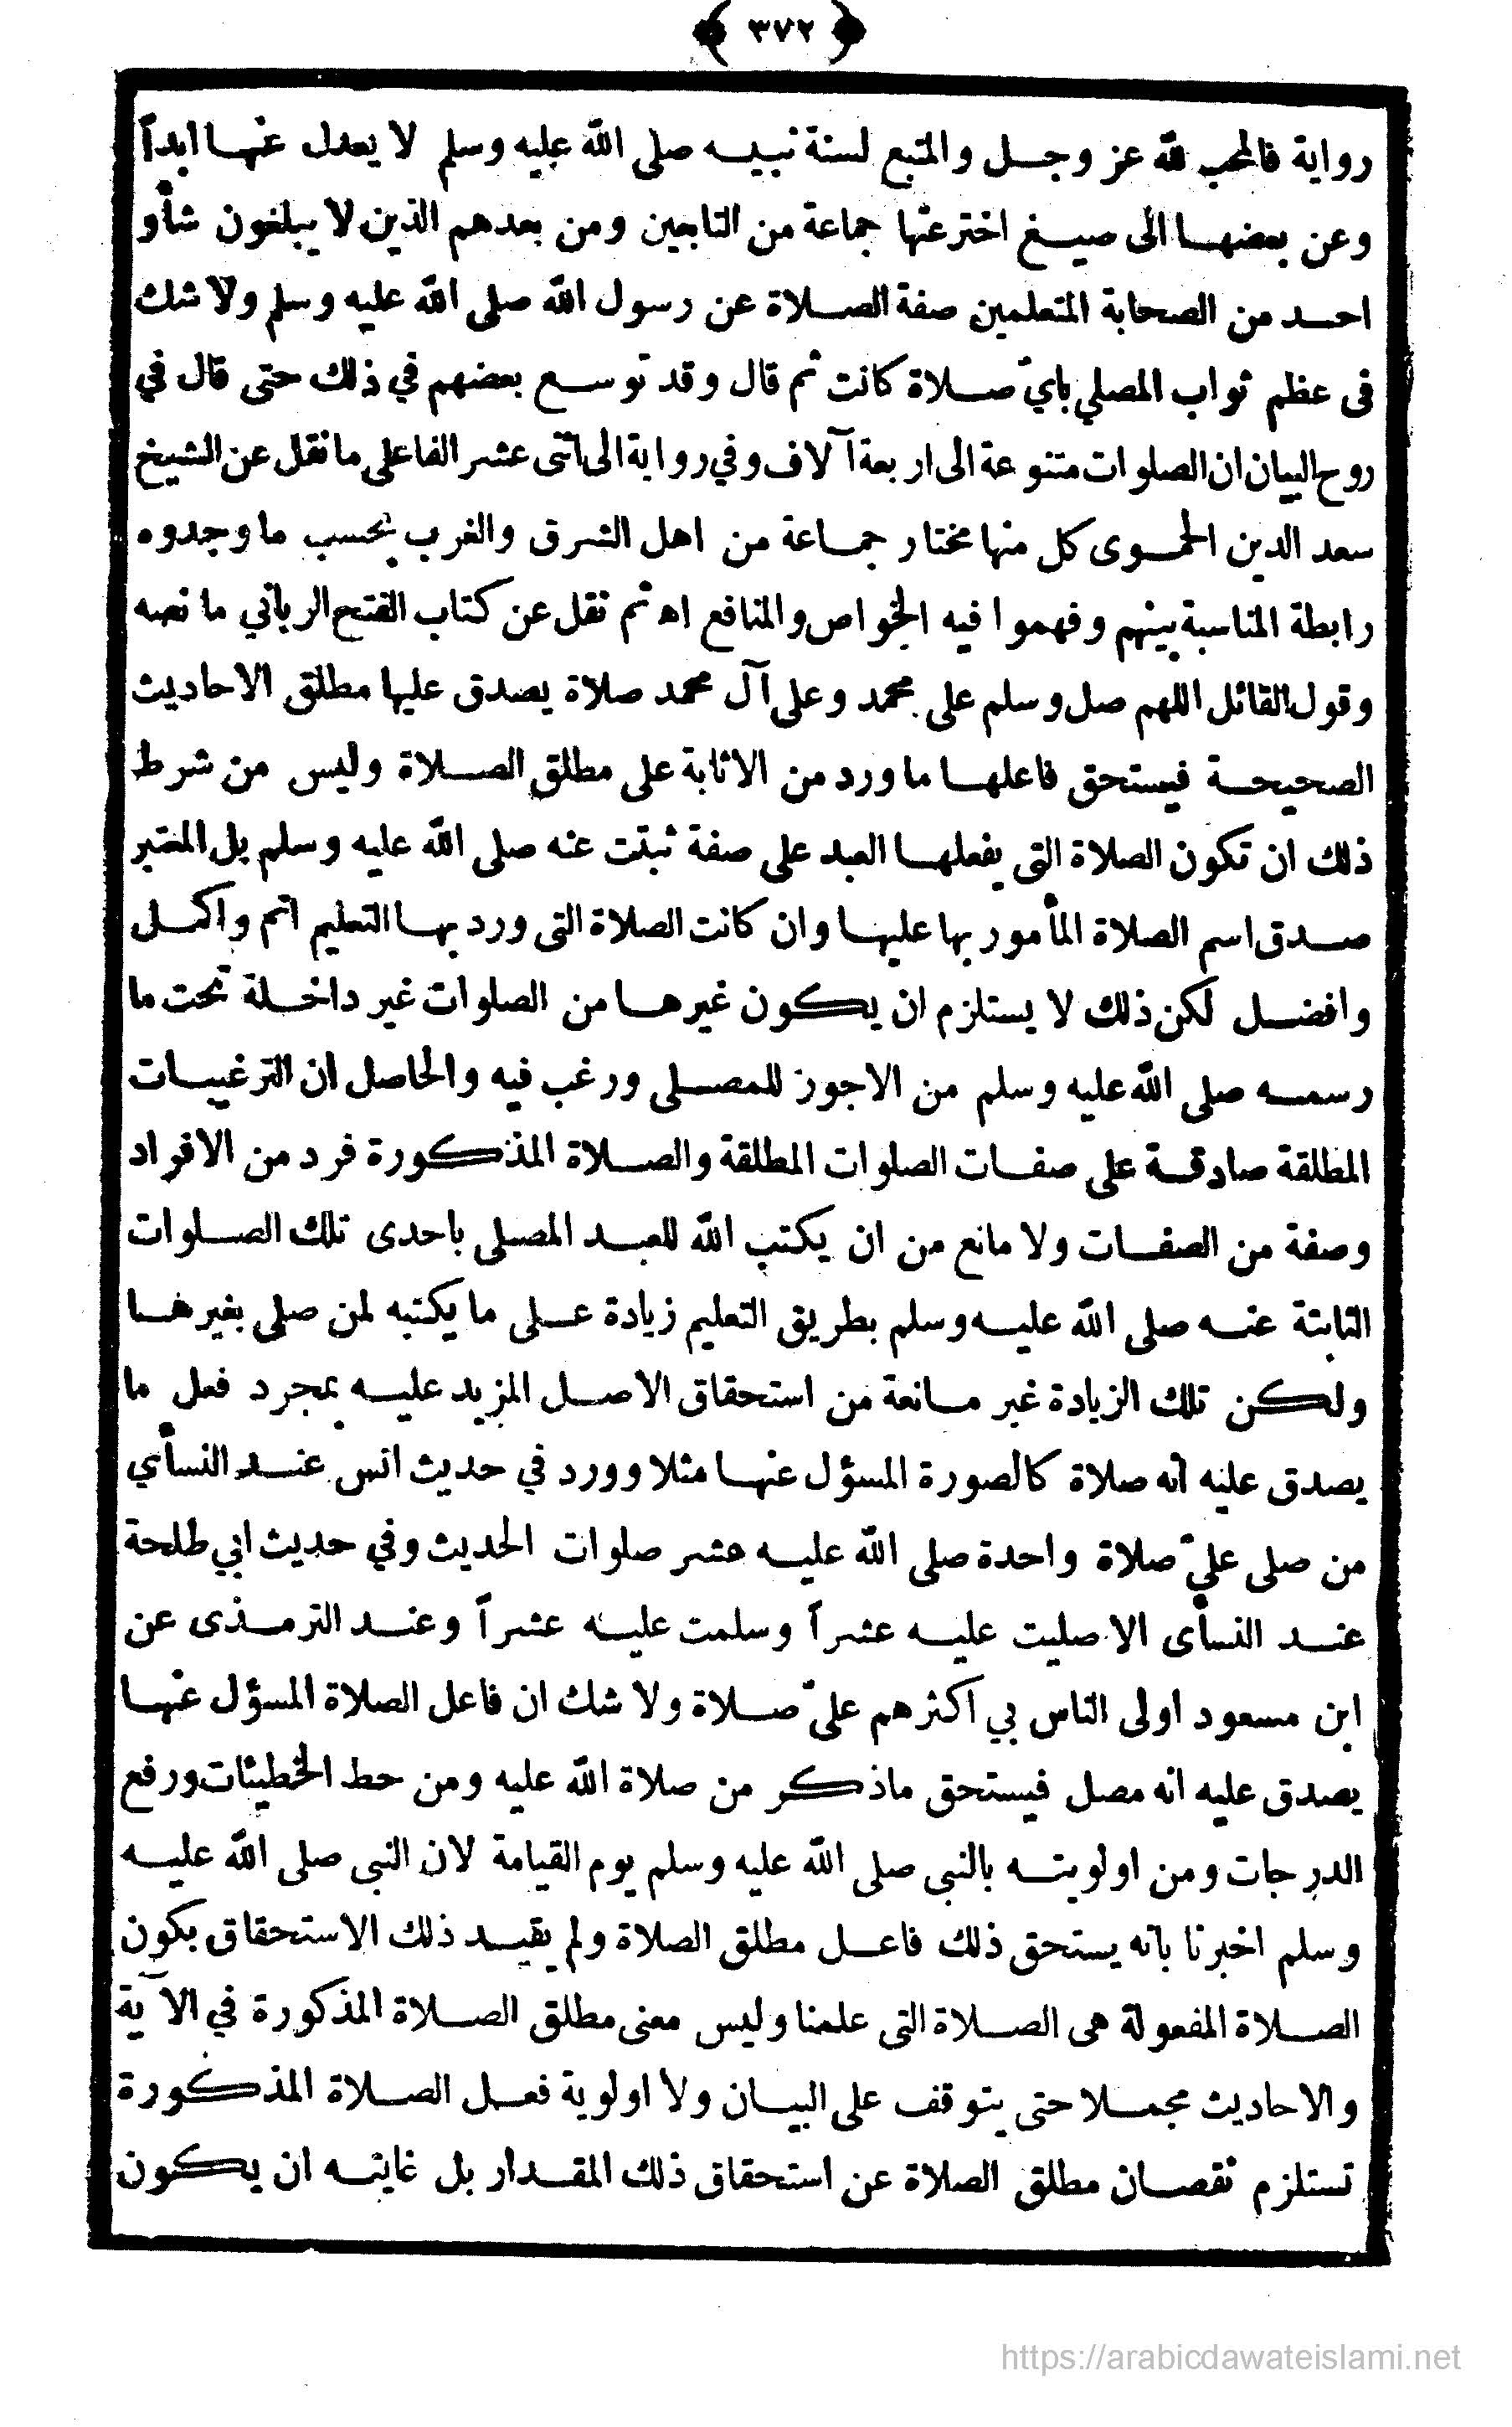 ﴿ ٣٧٢ ﴾
رواية فالمحب لله عز وجل والمتبع لسنة نبيه صلى الله عليه وسلم لا يعدل عنها ابداً
وعن بعضها الى صيغ اخترعتها جماعة من التابعين ومن بعدهم الذين لا يبلغون شأو
احد من الصحابة المتعلمين صفة الصلاة عن رسول الله صلى الله عليه وسلم ولا شك
فى عظم ثواب المصلي باي صلاة كانت ثم قال وقد توسع بعضهم في ذلك حتى قال في
روح البيان ان الصلوات متنوعة الى اربعة آلاف وفي رواية الى اثنى عشر الفا على ما نقل عن الشيخ
سعد الدين الحموى كل منها مختار جماعة من اهل الشرق والغرب بحسب ما وجدوه
رابطة المناسبة بينهم وفهموا فيه الخواص والمنافع اه ثم نقل عن كتاب الفتح الرباني ما نصه
وقول القائل اللهم صل وسلم على محمد وعلى آل محمد صلاة يصدق عليها مطلق الاحاديث
الصحيحة فيستحق فاعلها ما ورد من الاثابة على مطلق الصلاة وليس من شرط
ذلك ان تكون الصلاة التى يفعلها العبد على صفة ثبتت عنه صلى الله عليه وسلم بل المعتبر
صدق اسم الصلاة المأمور بها عليها وان كانت الصلاة التى ورد بها التعليم اتم واكمل
وافضل لكن ذلك لا يستلزم ان يكون غيرها من الصلوات غير داخلة تحت ما
رسمه صلى الله عليه وسلم من الاجور للمصلى ورغب فيه والحاصل ان الترغيبات
المطلقة صادقة على صفات الصلوات المطلقة والصلاة المذكورة فرد من الافراد
وصفة من الصفات ولا مانع من ان يكتب الله للعبد المصلى باحدى تلك الصلوات
الثابتة عنه صلى الله عليه وسلم بطريق التعليم زيادة على ما يكتبه لمن صلى بغيرها
ولكن تلك الزيادة غير مانعة من استحقاق الاصل المزيد عليه بمجرد فعل ما
يصدق عليه انه صلاة كالصورة المسؤل عنها مثلا وورد في حديث انس عند النسأي
من صلى عليّ صلاة واحدة صلى الله عليه عشر صلوات الحديث وفي حديث ابي طلحة
عند النسأى الا صليت عليه عشراً وسلمت عليه عشراً وعند الترمذى عن
ابن مسعود اولى الناس بي اكثرهم علىّ صلاة ولا شك ان فاعل الصلاة المسؤل عنها
يصدق عليه انه مصل فيستحق ماذكر من صلاة الله عليه ومن حط الخطيئات ورفع
الدرجات ومن اولويته بالنبى صلى الله عليه وسلم يوم القيامة لان النبى صلى الله عليه
وسلم اخبرنا بانه يستحق ذلك فاعل مطلق الصلاة ولم يقيد ذلك الاستحقاق بكون
الصلاة المفعولة هى الصلاة التى علمنا وليس معنى مطلق الصلاة المذكورة في الآية
والاحاديث مجملا حتى يتوقف على البيان ولا اولوية فعل الصلاة المذكورة
تستلزم نقصان مطلق الصلاة عن استحقاق ذلك المقدار بل غايته ان يكون
https://arabicdawateislami.net